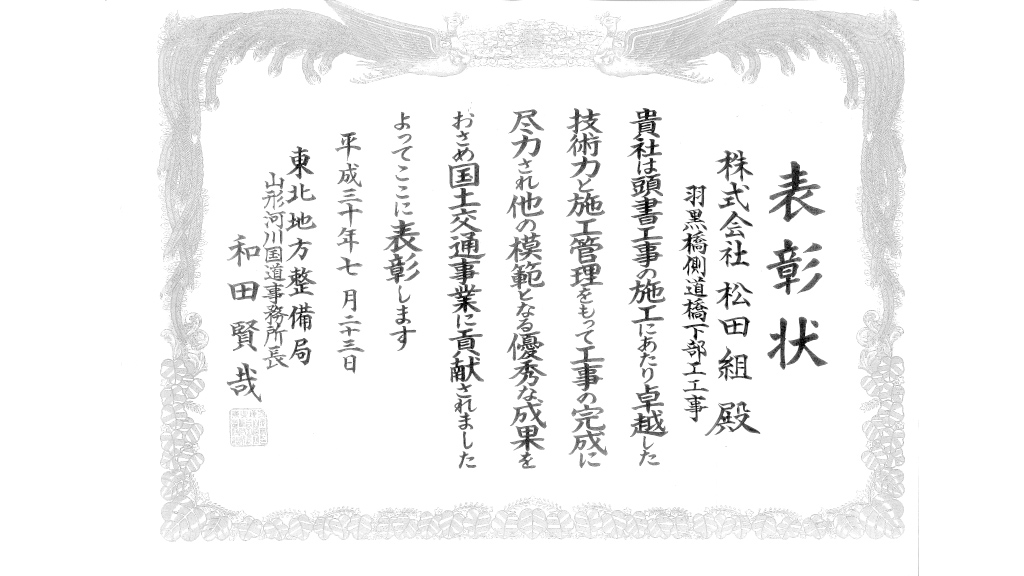 表彰状
株式会社 松田組 殿
羽黒橋側道橋下部工工事
貴社は頭書工事の施工にあたり卓越した
技術力と施工管理をもって工事の完成に
尽力され他の模範となる優秀な成果を
おさめ国土交通事業に貢献されました
よってここに表彰します
平成三十年七月二十三日
東北地方整備局
山形河川国道事務所長
和田賢哉